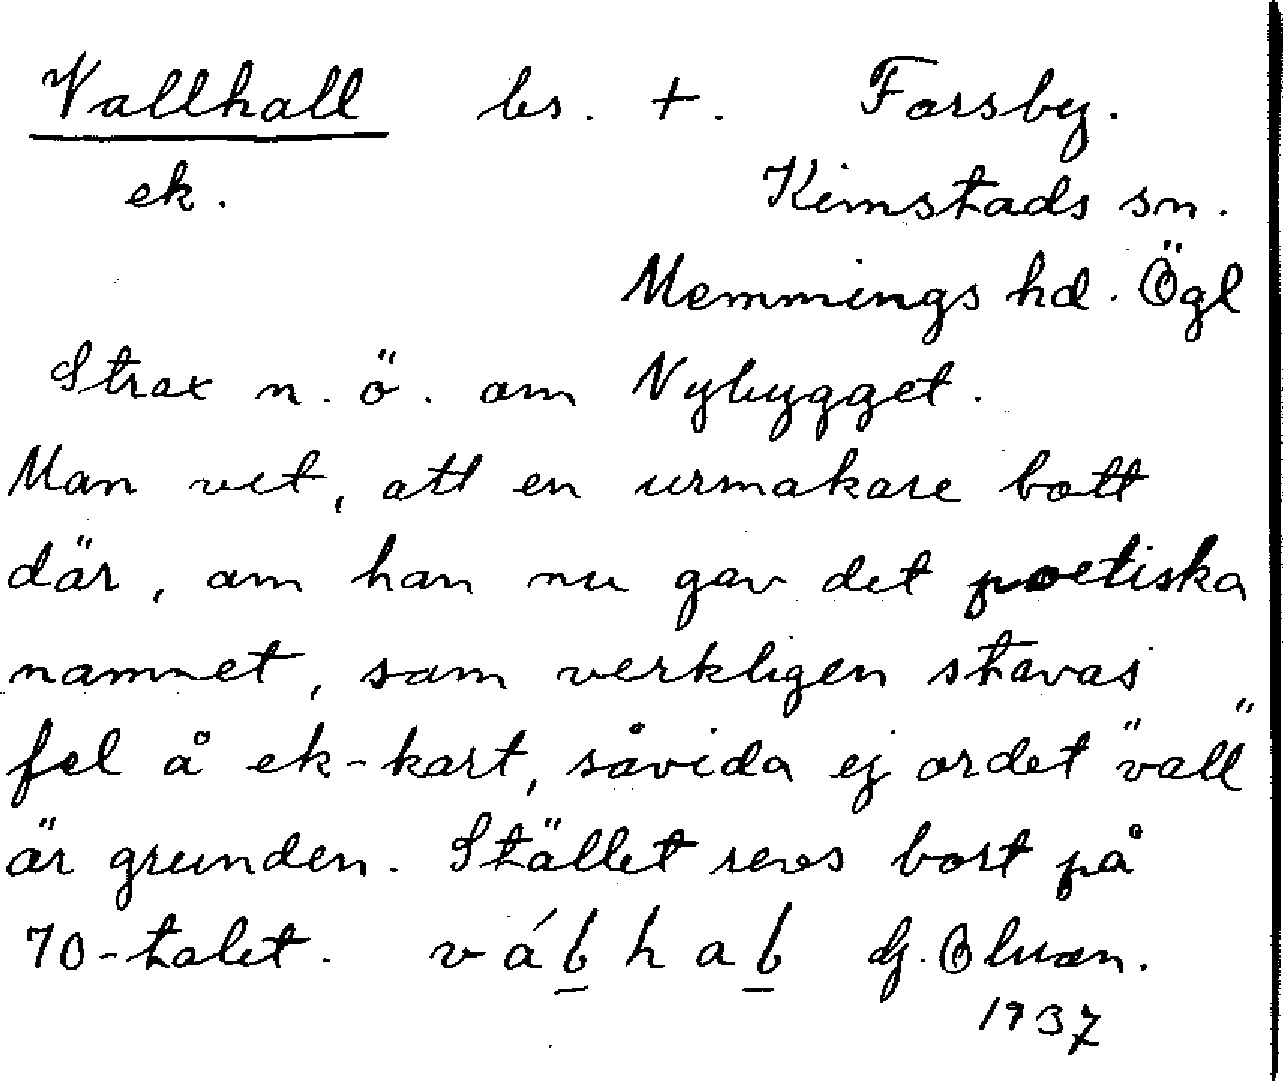 Vallhall bs. +. Forsby.
ek. Kimstads sn.
Memmings hd. Ögl
Strax n. ö. om Nybygget.
Man vet, att en urmakare bott
där, om han nu gav det poetiska
namnet, som verkligen stavas
fel å ek-kart, såvida ej ordet "vall"
är grunden. Stället revs bort på
70-talet. G.
1937